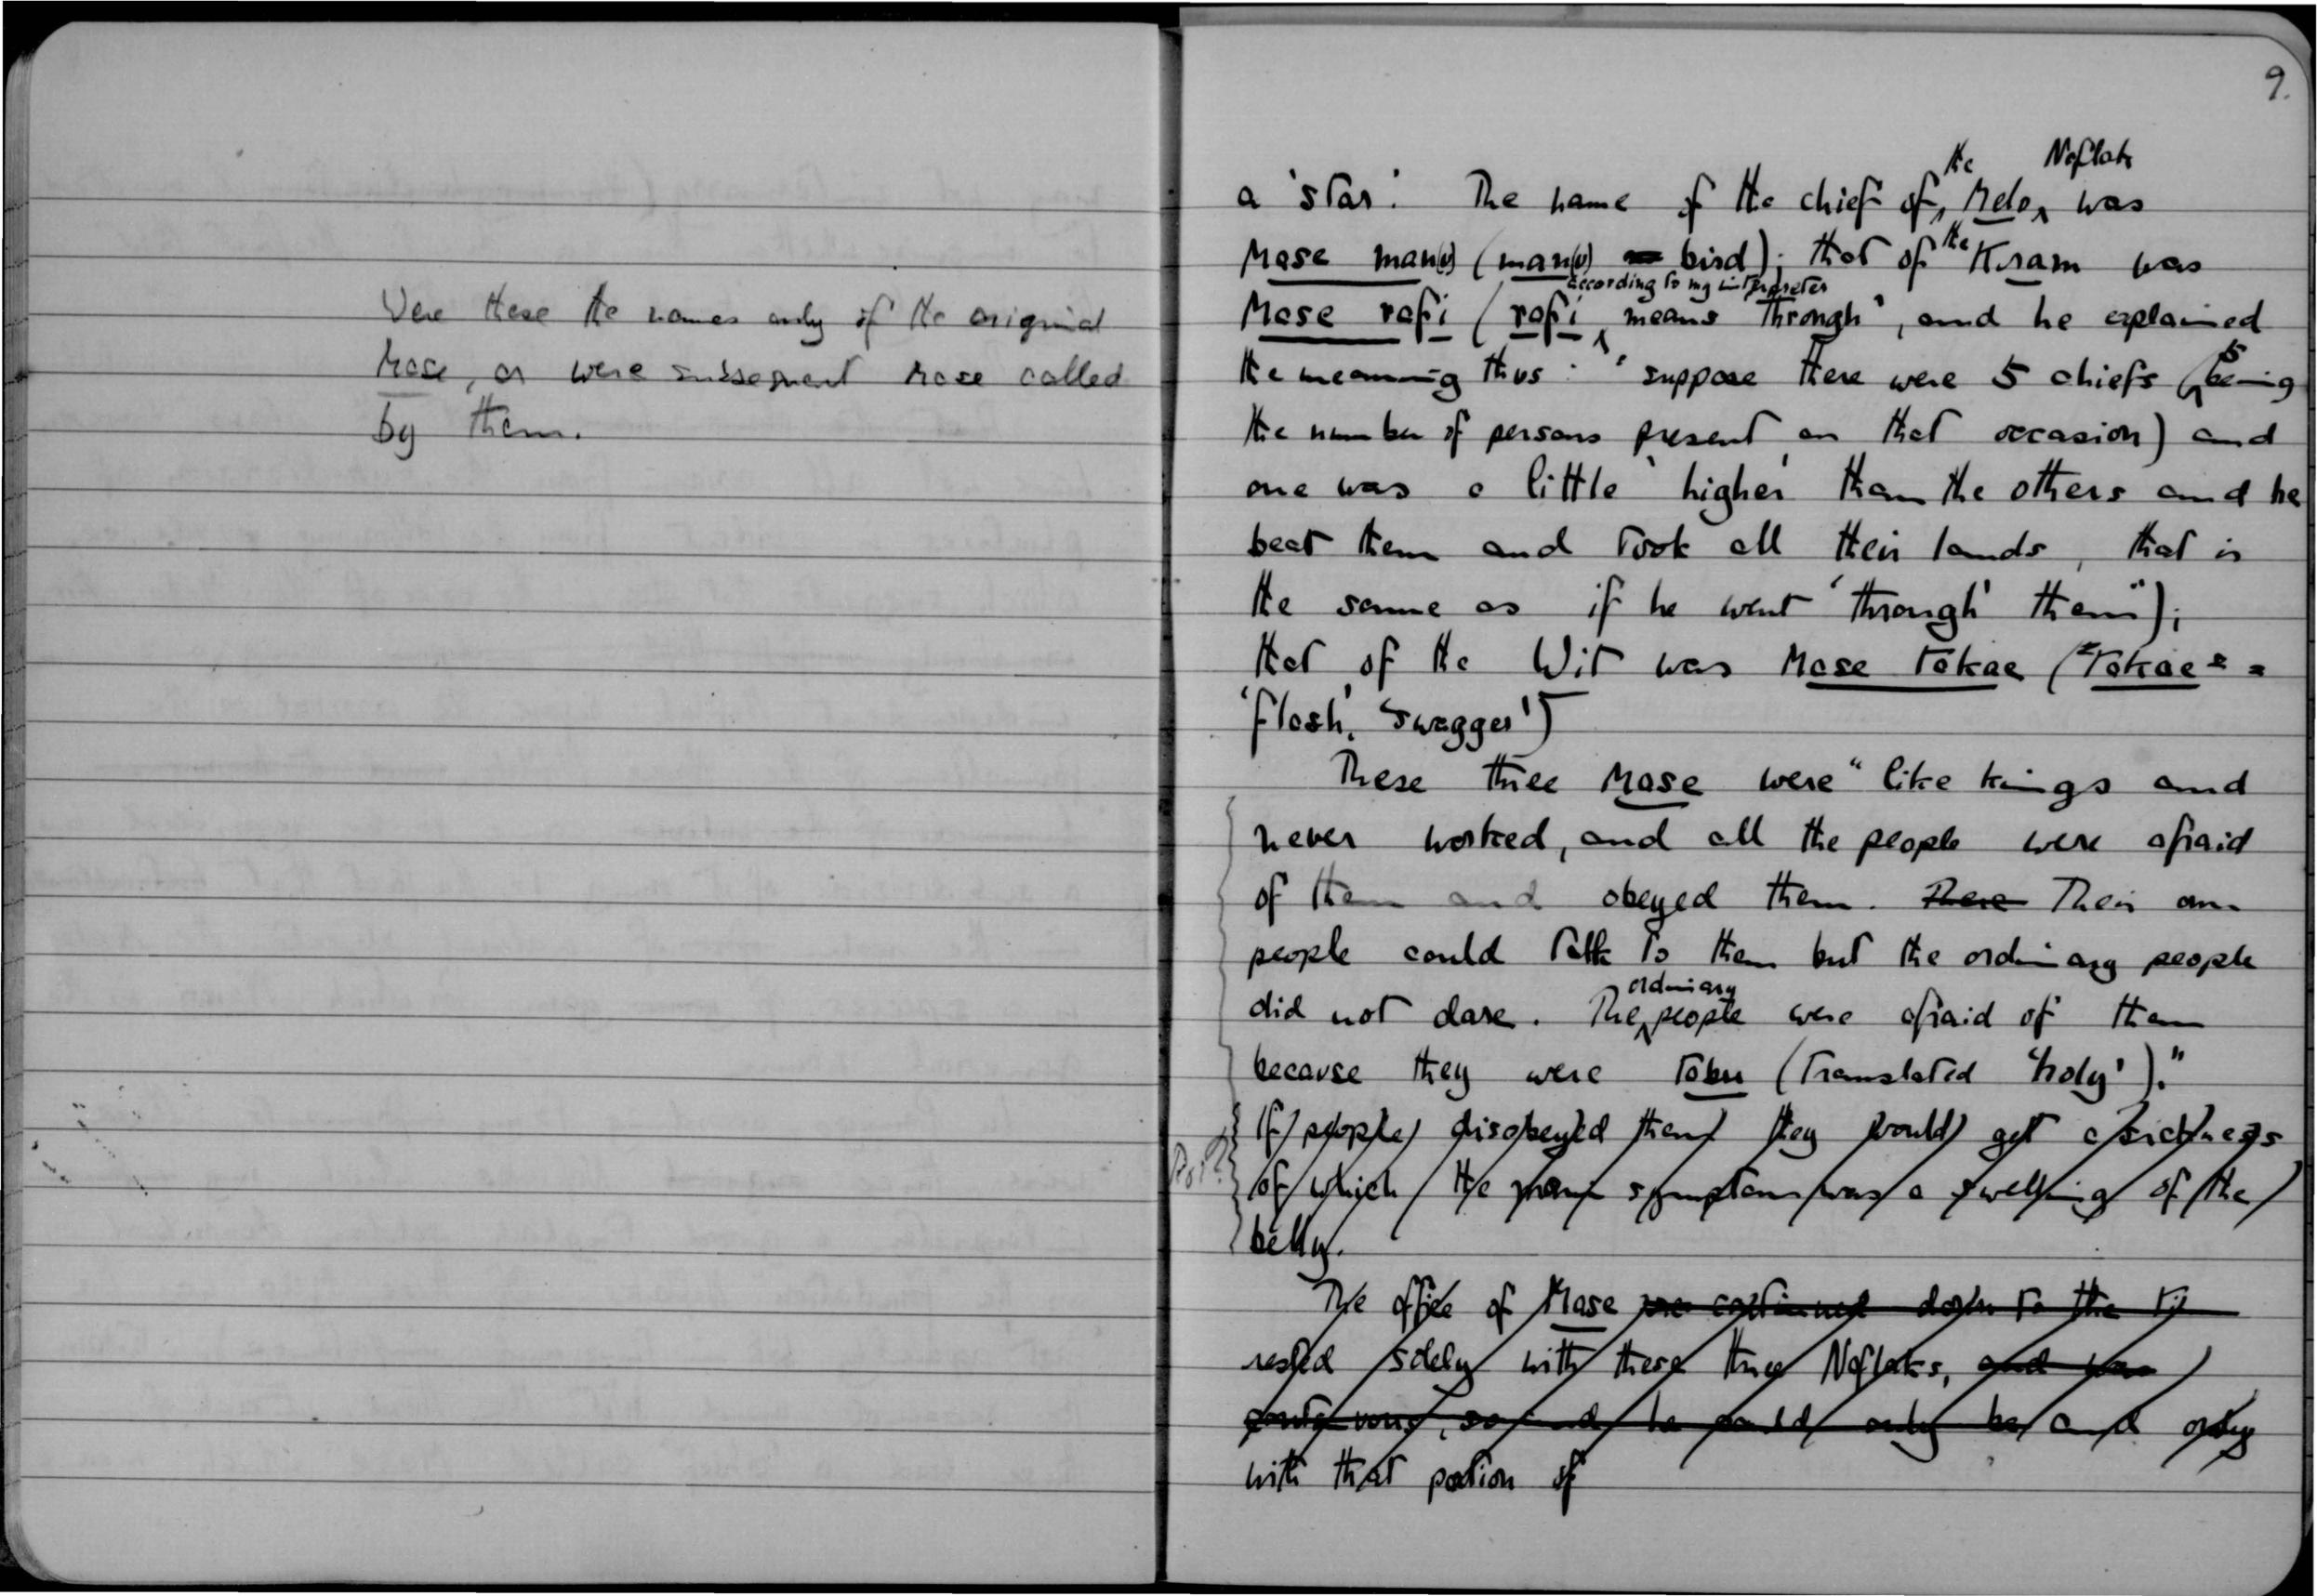 Were these the names only of the original
Mase, or were subsequent Mase called
by them.
9.
the Noflak
a 'star'. The name of the chief of Melo was
the
Mase man(u) (man(u) = bird); that of Kiram was
according to my interpreter
Mase rofi (rofi means 'through', and he explained
5
the meaning thus: "suppose there were 5 chiefs (being
the number of persons present on that occasion) and
one was a little 'higher' than the others and he
beat them and took all their lands, that is
the same as if he went 'through' them");
that of the Wit was Mase tokae ("tokae" =
'flash', 'swagger')
These three Mase were "like kings and
never worked, and all the people were afraid
of them and obeyed them. There Their own
people could talk to them but the ordinary people
ordinary
did not dare. The people were afraid of them
because they were tabu (translated 'holy')."
If people disobeyed them they would get a sickness
of which the main symptom was a swelling of the
belly.
The office of Mase was continued down to the ti
rested solely with these three Noflaks, and was
so and he could only be and only
with that portion of